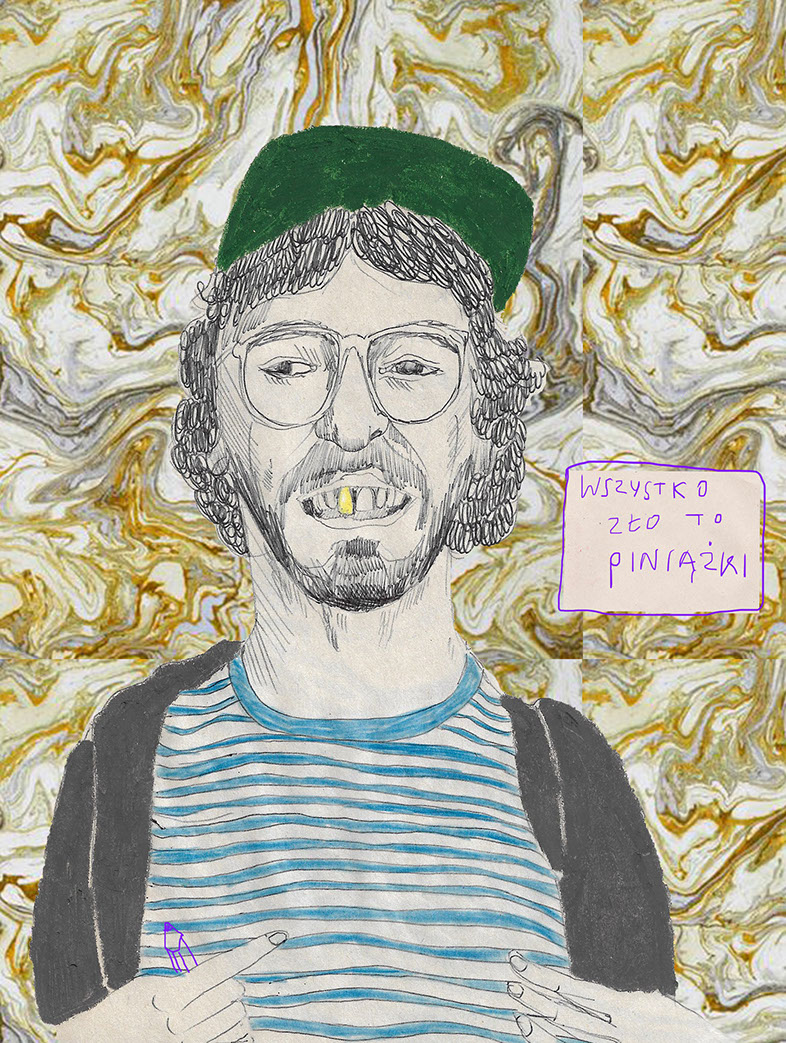 WSZYSTKO
ZŁO TO
PINIĄŻKI